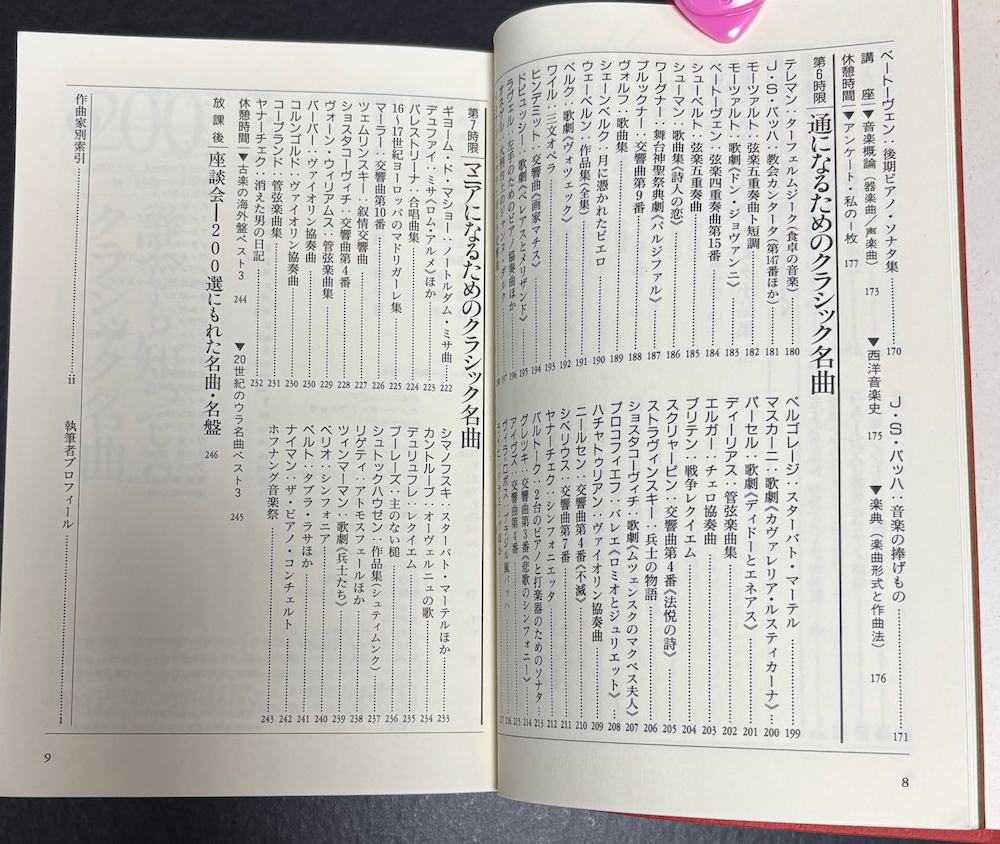 ベートーヴェン：後期ピアノ・ソナタ集……170
J・S・バッハ：音楽の捧げもの……171
講　座 ▼音楽概論（器楽曲／声楽曲） 173 ▼西洋音楽史 175 ▼楽典（楽曲形式と作曲法） 176
休憩時間 ▼アンケート・私の一枚 177
第6時限 通になるためのクラシック名曲
テレマン：ターフェルムジーク（食卓の音楽）……180
J・S・バッハ：教会カンタータ（第147番ほか）……181
モーツァルト：弦楽五重奏曲ト短調……182
モーツァルト：歌劇《ドン・ジョヴァンニ》……183
ベートーヴェン：弦楽四重奏曲第15番……184
シューベルト：弦楽五重奏曲……185
シューマン：歌曲集《詩人の恋》……186
ワーグナー：舞台神聖祭典劇《パルシファル》……187
ブルックナー：交響曲第9番……188
ヴォルフ：歌曲集……189
シェーンベルク：月に憑かれたピエロ……190
ウェーベルン：作品集（全集）……191
ベルク：歌劇《ヴォツェック》……192
ワイル：三文オペラ……193
ヒンデミット：交響曲《画家マチス》……194
ドビュッシー：歌劇《ペレアスとメリザンド》……195
ラヴェル：左手のためのピアノ協奏曲ほか……196
オネゲル：火刑台上のジャンヌ・ダルク……197
198
ペルゴレージ：スターバト・マーテル……199
マスカーニ：歌劇《カヴァレリア・ルスティカーナ》……200
パーセル：歌劇《ディドーとエネアス》……201
ディーリアス：管弦楽曲集……202
エルガー：チェロ協奏曲……203
ブリテン：戦争レクイエム……204
スクリャービン：交響曲第4番《法悦の詩》……205
ストラヴィンスキー：兵士の物語……206
ショスタコーヴィチ：歌劇《ムツェンスクのマクベス夫人》……207
プロコフィエフ：バレエ《ロミオとジュリエット》……208
ハチャトゥリアン：ヴァイオリン協奏曲……209
ニールセン：交響曲第4番《不滅》……210
シベリウス：交響曲第7番……211
ヤナーチェク：シンフォニエッタ……212
バルトーク：2台のピアノと打楽器のためのソナタ……213
グレツキ：交響曲第3番《悲歌のシンフォニー》……214
アイヴズ：交響曲第4番……215
ヴィラ＝ロボス：ブラジル風バッハ……216
ライヒ：ドラミングほか……217
8
第7時限 マニアになるためのクラシック名曲
ギヨーム・ド・マショー：ノートルダム・ミサ曲……222
デュファイ：ミサ《ロム・アルメ》ほか……223
パレストリーナ：合唱曲集……224
16〜17世紀ヨーロッパのマドリガーレ集……225
マーラー：交響曲第10番……226
ツェムリンスキー：叙情交響曲……227
ショスタコーヴィチ：交響曲第4番……228
ヴォーン・ウィリアムス：管弦楽曲集……229
バーバー：ヴァイオリン協奏曲……230
コルンゴルド：ヴァイオリン協奏曲……230
コープランド：管弦楽曲集……231
ヤナーチェク：消えた男の日記……232
シマノフスキ：スターバト・マーテルほか……233
カントルーブ：オーヴェルニュの歌……234
デュリュフレ：レクイエム……235
ブーレーズ：主のない槌……236
シュトックハウゼン：作品集（シュティムンク）……237
リゲティ：アトモスフェールほか……238
ツィンマーマン：歌劇《兵士たち》……239
ベリオ：シンフォニア……240
ペルト：タブラ・ラサほか……241
ナイマン：ザ・ピアノ・コンチェルト……242
ホフナング音楽祭……243
休憩時間 ▼古楽の海外盤ベスト3 244 ▼20世紀のウラ名曲ベスト3 245
放課後 座談会―200選にもれた名曲・名盤 246
作曲家別索引……ii
執筆者プロフィール……i
9